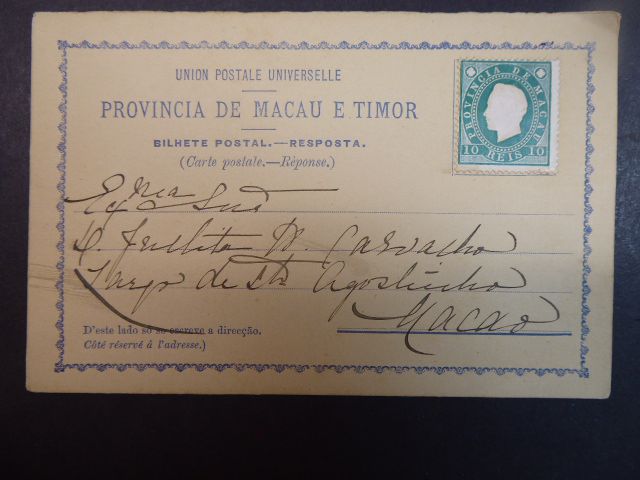 UNION POSTALE UNIVERSELLE
PROVINCIA DE MACAU E TIMOR
BILHETE POSTAL.—RESPOSTA.
(Carte postale.—Réponse.)
PROVINCIA DE MACAU
10 REIS 10
Exma Snra
D. Jullita M. Carvalho
Largo de Sto Agostinho
Macao
D'este lado só se escreve a direcção.
Côté réservé à l'adresse.)